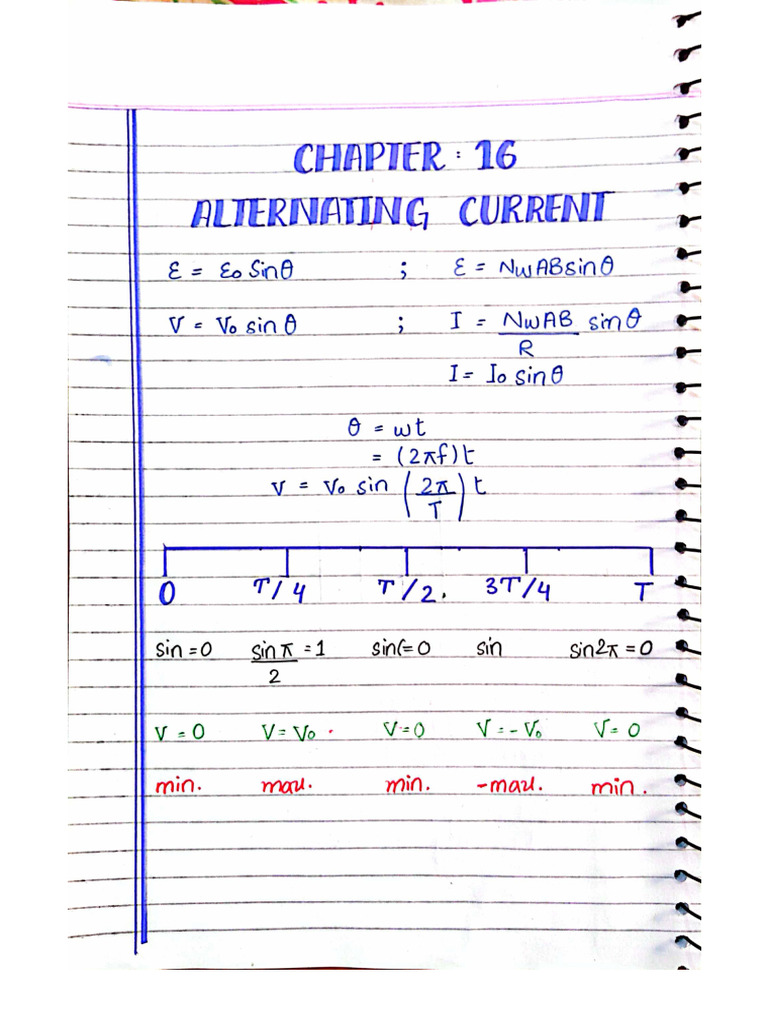 CHAPTER : 16
ALTERNATING CURRENT
Ɛ = Ɛ₀ Sinθ ; Ɛ = NωABsinθ
V = V₀ sinθ ; I = NωAB/R sinθ
I = I₀ sinθ
θ = ωt
= (2πf)t
V = V₀ sin (2π/T) t
0 T/4 T/2. 3T/4 T
sin = 0 sinπ/2 = 1 sin(= 0 sin sin2π = 0
V = 0 V = V₀ V = 0 V = -V₀ V = 0
min. max. min. -max. min.